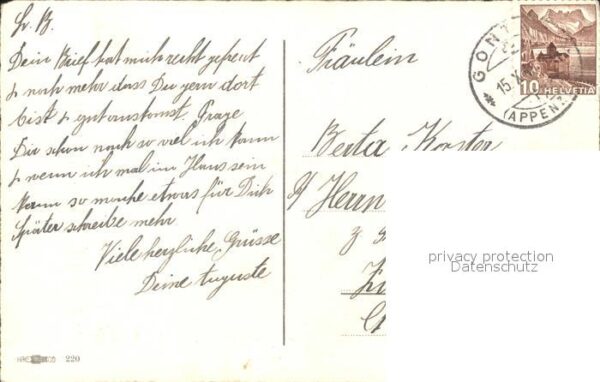 L. B.
Dein Brief hat mich recht gefreut
& noch mehr dass Du gern dort
bist & gut auskomst. Frage
Dir schon noch so viel ich kann
& wenn ich mal im Haus sein
kann so mache etwas für Dich
Später schreibe mehr.
Viele herzliche Grüsse
Deine Auguste
220
Fräulein
Berta
Herrn
z
GON
15. X
(APPENZ
10 HELVETIA
privacy protection
Datenschutz